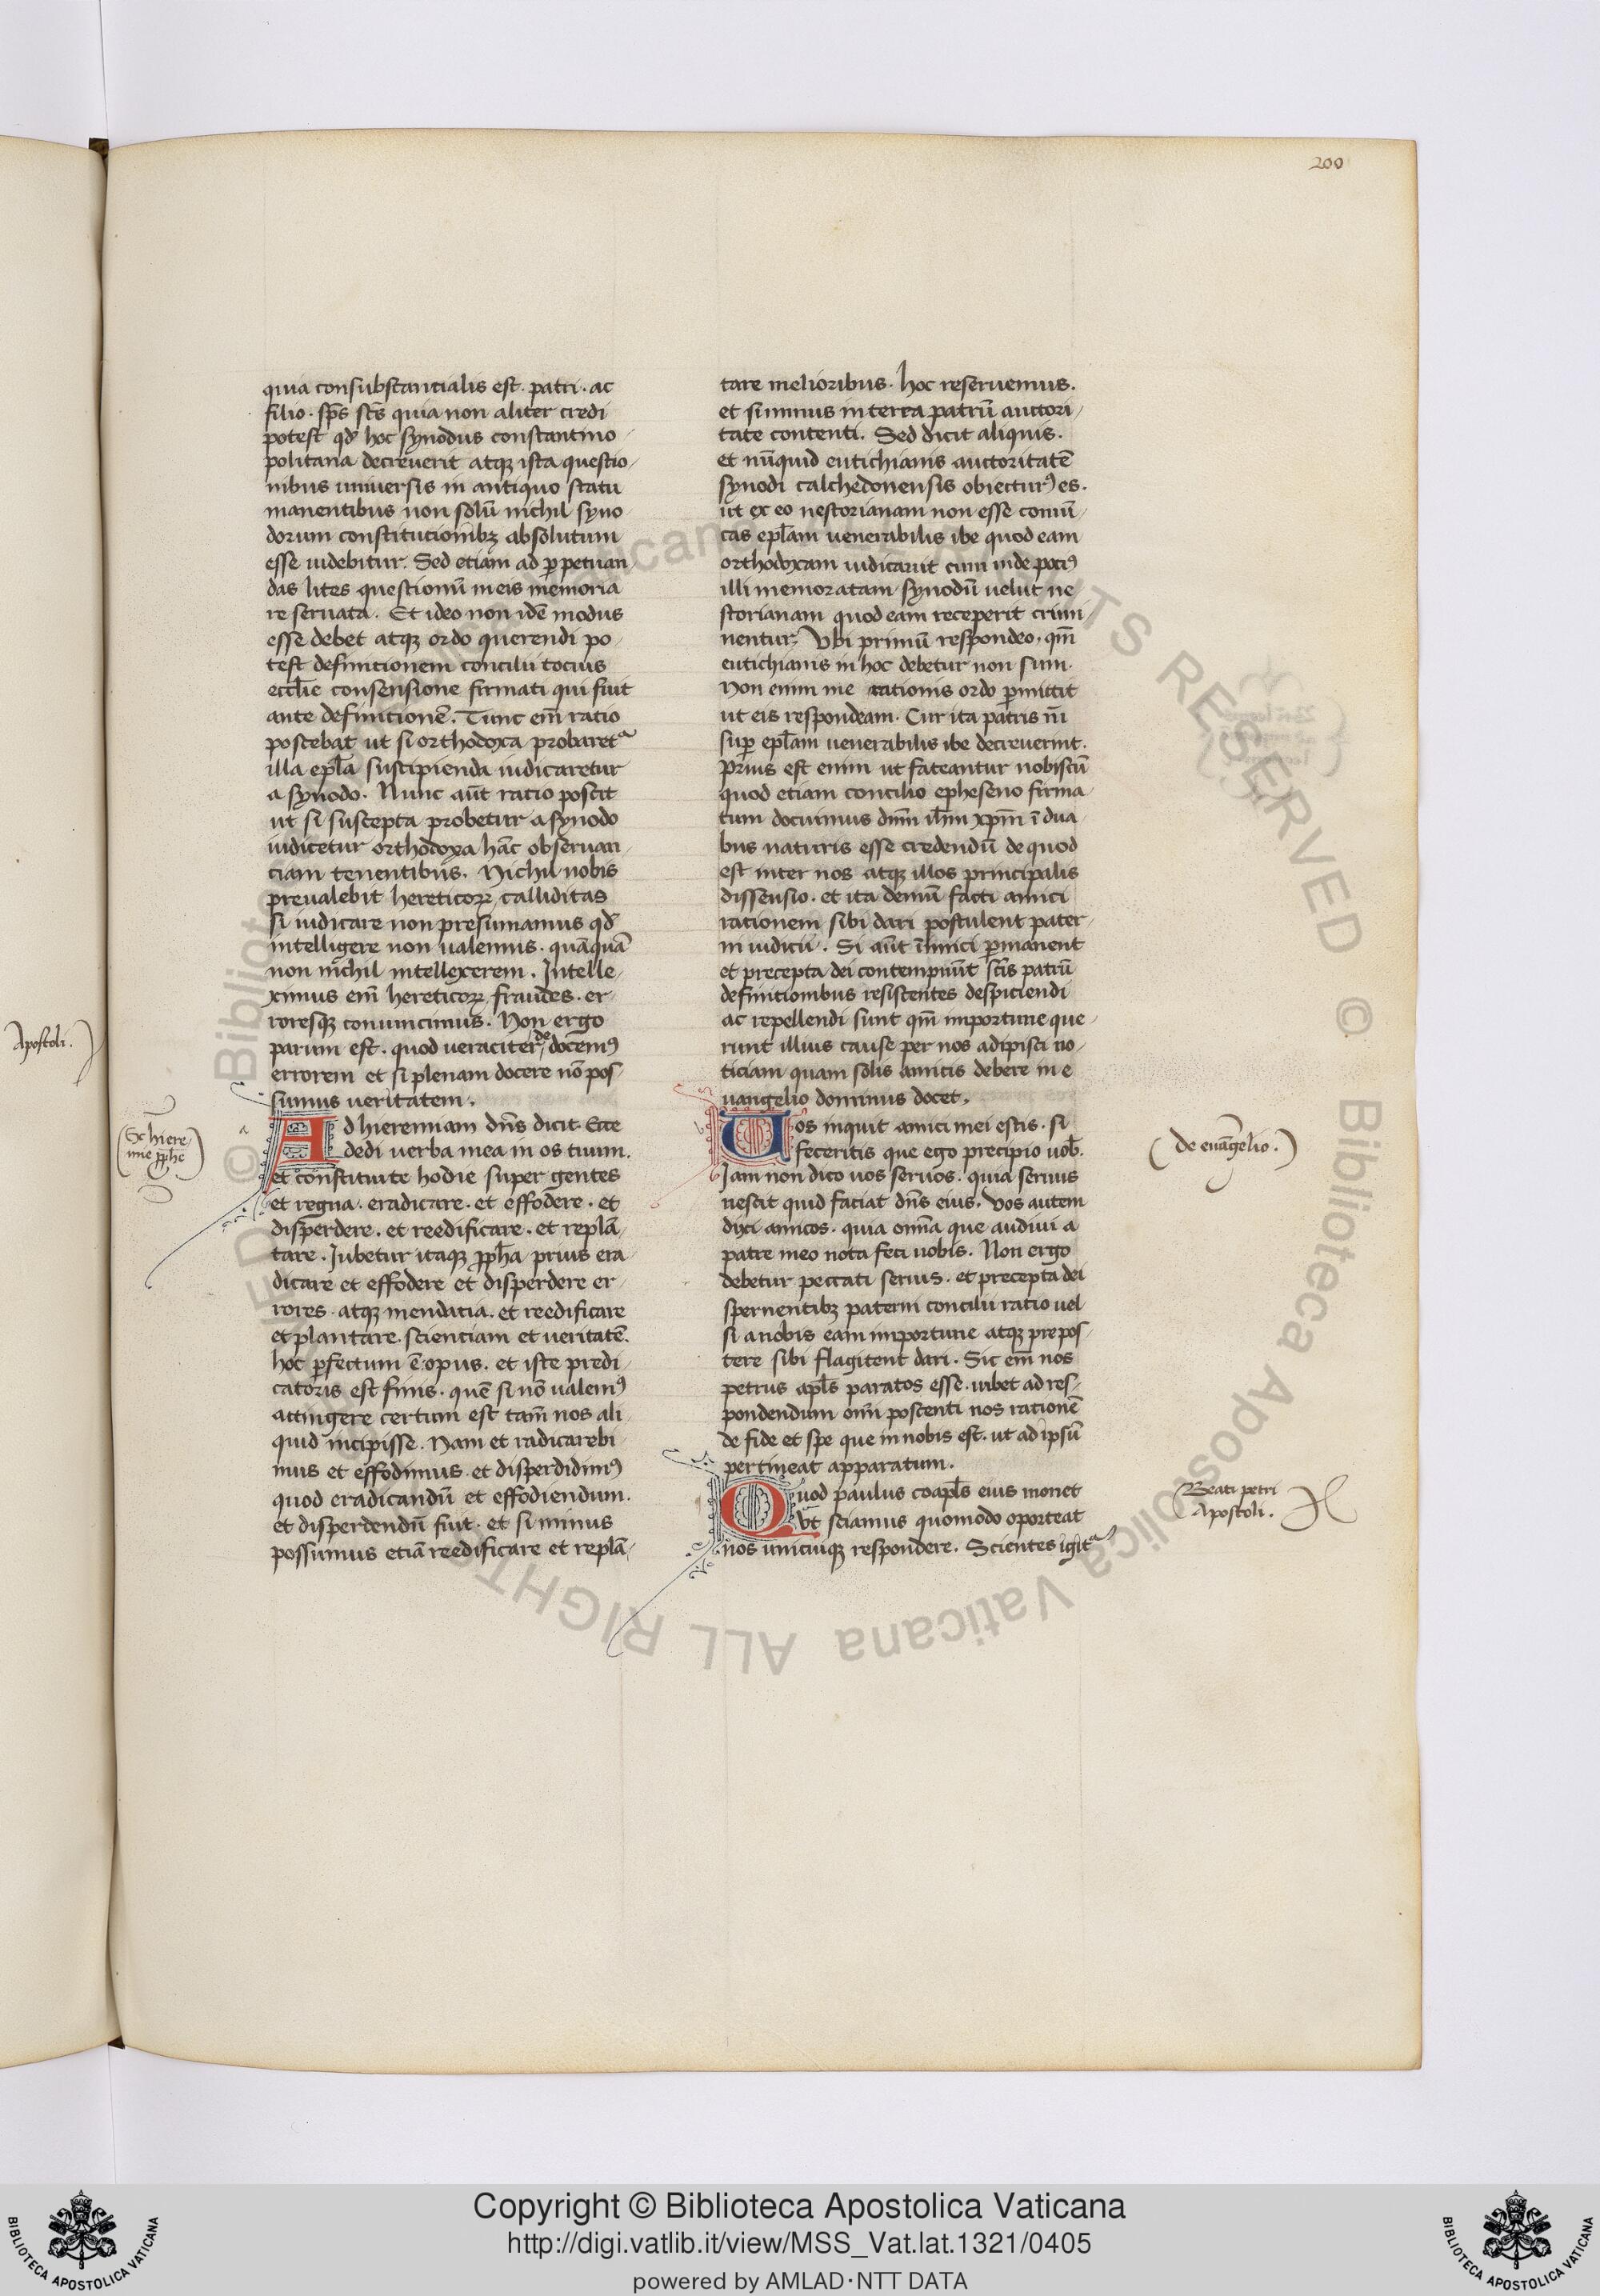 200
quia consubstantialis est. patri. ac
filio. sp̄s sc̄s quia non aliter credi
potest qd̄ hoc synodus constantino-
politana decreuerit atqꝫ ista questio-
nibus uniuersis in antiquo statu
manentibus non solū nichil syno-
dorum constitucionibꝫ absolutum
esse uidebitur. Sed etiam ad ꝑpetuan-
das lites questionū meis memoria
reseruata. Et ideo non idē modus
esse debet atqꝫ ordo querendi po-
test definitionem concilii tocius
eccl̄ie consensione firmati qui fuit
ante definitionē. Tunc em̄ ratio
poscebat ut si orthodoxa probaretᵃ
illa epl̄a suscipienda iudicaretur
a synodo. Nunc aūt ratio poscit
ut si suscepta probetur a synodo
iudicetur orthodoxa hāc obseruan-
ciam tenentibus. Nichil nobis
preualebit hereticoꝝ calliditas
si iudicare non presumamus qd̄
intelligere non ualemus. quāquā
non nichil intellexerem. Intelle-
ximus em̄ hereticoꝝ fraudes. er-
roresqꝫ conuincimus. Non ergo
parum est. quod ueraciter de docemꝰ
errorem et si plenam docere nō pos-
sumus ueritatem.
Ad hieremiam dn̄s dicit Ecce
dedi uerba mea in os tuum.
et constituite hodie super gentes
et regna. eradicare. et effodere. et
disperdere. et reedificare. et replā-
tare. Iubetur itaqꝫ ꝓph̄a prius era-
dicare et effodere et disperdere er-
rores. atqꝫ mendatia. et reedificare
et plantare. scienciam et ueritatē.
hoc ꝑfectum ē opus. et iste predi-
catoris est finis. quē si nō ualemꝰ
attingere certum est tam̄ nos ali-
quid incipisse. Nam et radicarebi-
mus et effodimus. et disperdidimꝰ
quod eradicandū et effodiendum.
et disperdendū fuit. et si minus
possumus etiā reedificare et replā-
tare melioribus. hoc reseruemus.
et simmus in terra patrū auctori-
tate contenti. Sed dicit aliquis.
et nūquid eutichianis auctoritatē
synodi calchedonensis obiecturꝰ es.
ut ex eo nestorianam non esse comū-
cas epl̄am uenerabilis ibe quod eam
orthodoxam iudicarit cum inde pociꝰ
illi memoratam synodū uelut ne
storianam quod eam receperit crimi-
nentur. Vbi primū respondeo. qm̄
eutichianis in hoc debetur non sum.
Non enim me rationis ordo ꝑmittit
ut eis respondeam. Cur ita patris nr̄i
suꝑ epl̄am uenerabilis ibe decreuerint.
Prius est enim ut fateantur nobiscū
quod etiam concilio epheseno firma-
tum docuimus dnm̄ ihm̄ xpm̄ ī dua-
bus naturis esse credendū de quod
est inter nos atqꝫ illos principalis
dissensio. et ita demū facti amici
rationem sibi dari postulent pater-
ni iudicii. Si aūt inimici ꝑmanent
et precepta dei contempnūt sc̄is patrū
definitionibus resistentes despiciendi
ac repellendi sunt qm̄ importune que-
runt illius cause per nos adipisci no-
ticiam quam solis amicis debere in e
uangelio dominus docet.
Uos inquit amici mei estis. si
feceritis que ego precipio uob̄.
Iam non dico uos seruos. quia seruus
nescit quid faciat dn̄s eius. Vos autem
dixi amicos. quia omn̄a que audiui a
patre meo nota feci uobis. Non ergo
debetur peccati seruis. et precepta dei
spernentibꝫ paterni concilii ratio uel
si a nobis eam importune atqꝫ prepos-
tere sibi flagitent dari. Sic em̄ nos
petrus apl̄s paratos esse. iubet ad res-
pondendum omī poscenti nos rationē
de fide et spe que in nobis est. ut ad ipsū
pertineat apparatum.
Quod paulus coapl̄s eius monet
Vt sciamus quomodo oporteat
nos unicuiqꝫ respondere. Scientes igitᵃ
Apostoli.
Ex hiere-
mie ꝓph̄e
de euāgelio.
Beati petri
Apostoli.
Copyright © Biblioteca Apostolica Vaticana
http://digi.vatlib.it/view/MSS_Vat.lat.1321/0405
powered by AMLAD·NTT DATA
BIBLIOTECA APOSTOLICA VATICANA
BIBLIOTECA APOSTOLICA VATICANA